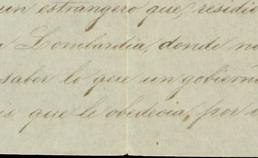 un estrangero que residio
Lombardia, donde no
saber lo que un gobierno
que le obedecia, por